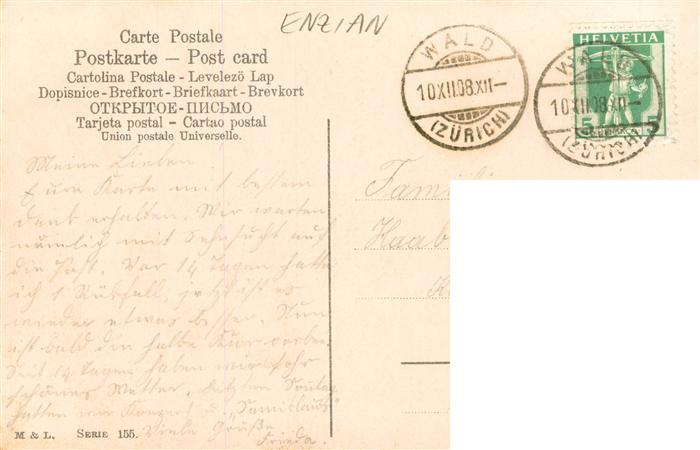 ENZIAN
Carte Postale
Postkarte — Post card
Cartolina Postale - Levelező Lap
Dopisnice - Brefkort - Briefkaart - Brevkort
ОТКРЫТОЕ-ПИСЬМО
Tarjeta postal — Cartao postal
Union postale Universelle.
WALD
10XII.08.XII-
(ZÜRICH)
HELVETIA
5
WALD
10XII.08.XII-
(ZÜRICH)
Meine Lieben
Eure Karte mit bestem
Dank erhalten. Wir warten
nämlich mit Sehnsucht auf
die Post. Vor 14 Tagen hatte
ich 1 Rükfall, jetzt ist es
wieder etwas besser. Nun
ist bald die halbe Kur vorbei.
Seit 14 Tagen haben wir sehr
schönes Wetter. Letzten Sontag
hatten wir Konzert v.
Viele Grüße
Frieda.
Famili
Haab
M & L. SERIE 155.